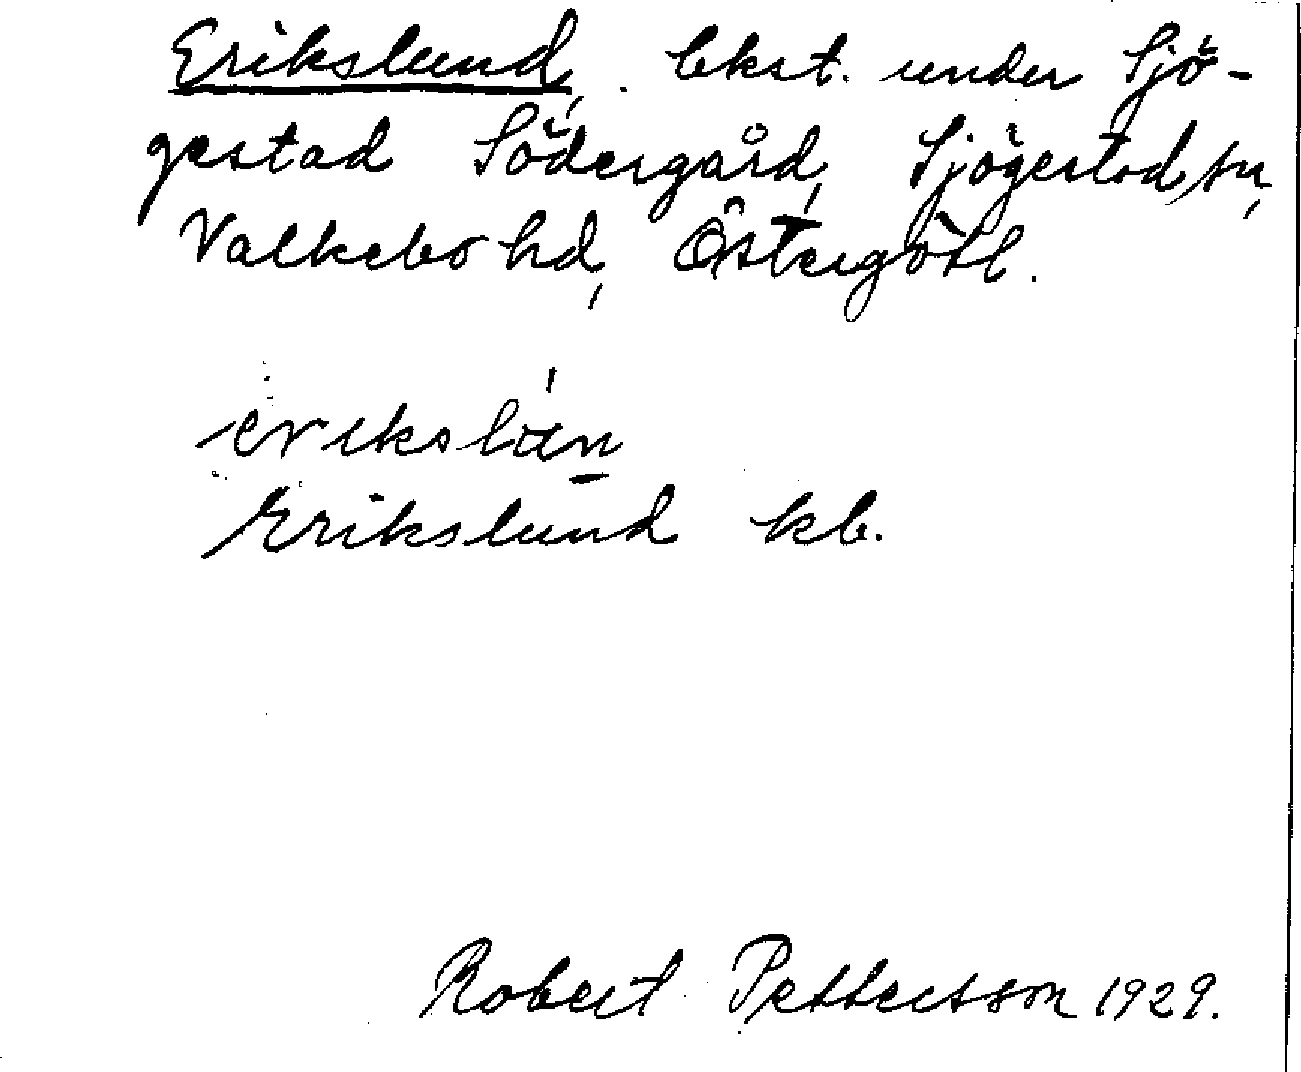 Erikslund, bkst. under Sjö-
gestad Södergård, Sjögestad sn,
Valkebo hd, Östergötl.
Erikslund kb.
Robert Pettersson 1929.